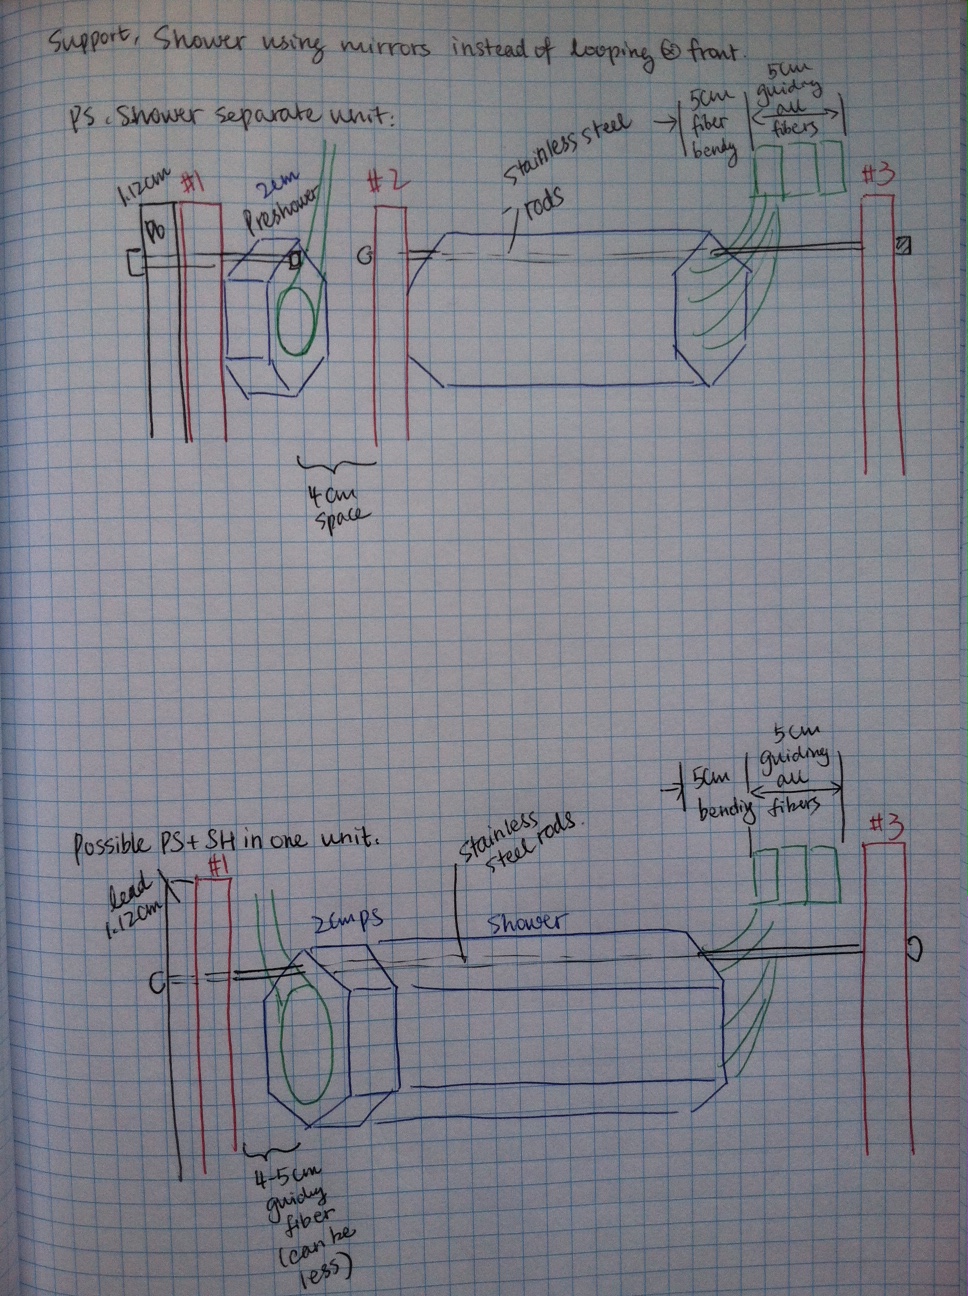 Support, Shower using mirrors instead of looping @ front.
PS, Shower separate unit:
1.12cm
Pb
#1
2cm
Preshower
#2
stainless steel
rods
5cm
fiber
bendy
5cm
guiding
all
fibers
#3
4cm
space
Possible PS+SH in one unit.
lead
1.12cm
#1
2cm PS
Shower
stainless
steel rods.
5cm
bending
5cm
guiding
all
fibers
#3
4-5cm
guiding
fiber
(can be
less)